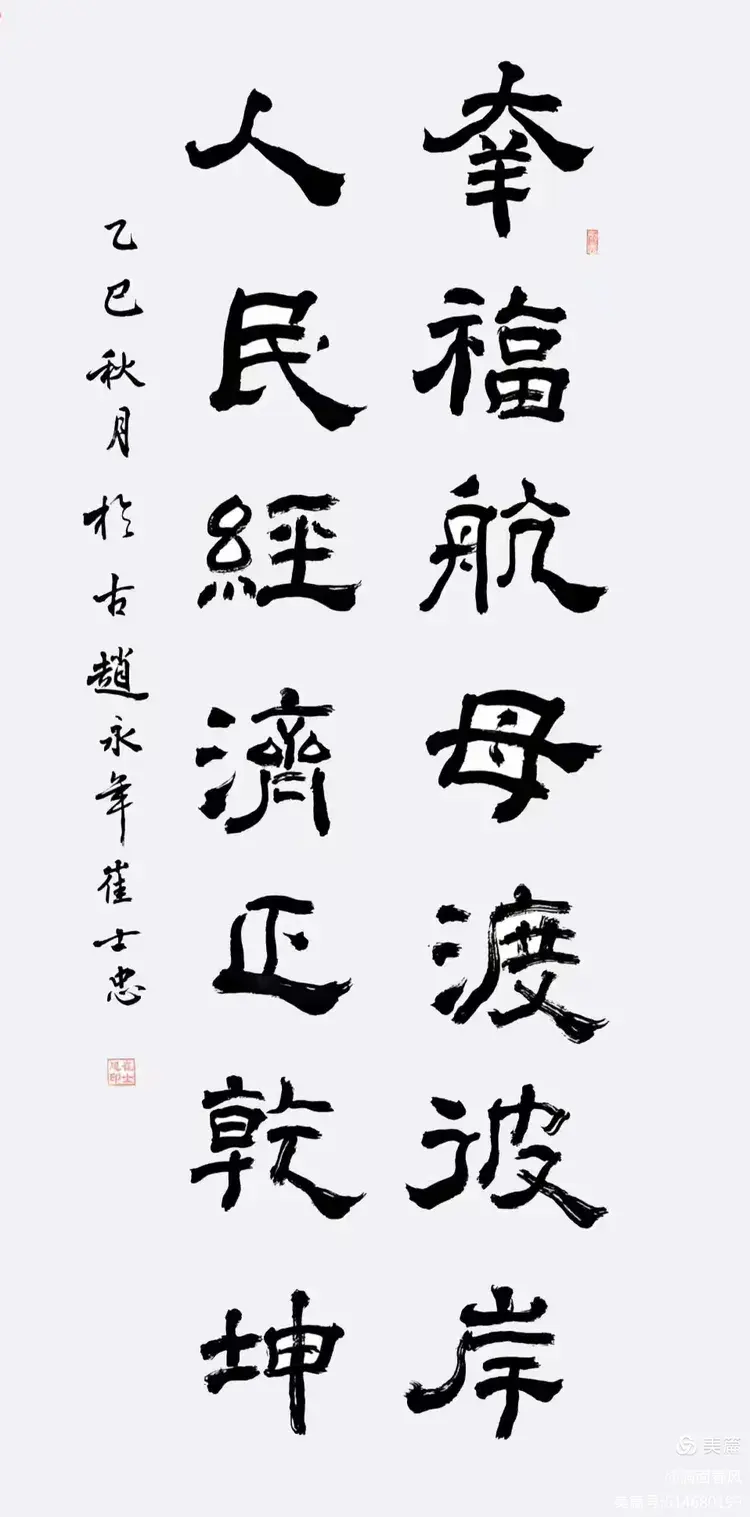 幸福航母渡彼岸
人民經濟正乾坤
乙巳秋月於古趙永年崔士忠
崔士忠印
美篇